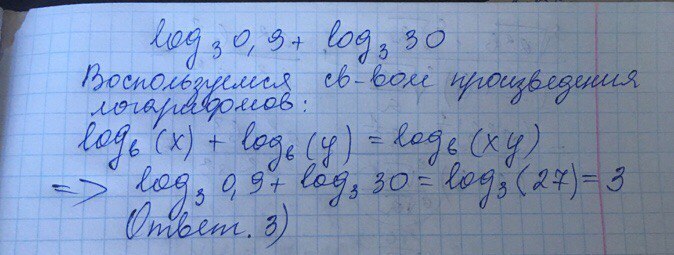 log₃ 0,9 + log₃ 30
Воспользуемся св-вом произведения
логарифмов:
log_b (x) + log_b (y) = log_b (xy)
=> log₃ 0,9 + log₃ 30 = log₃ (27) = 3
Ответ. 3)